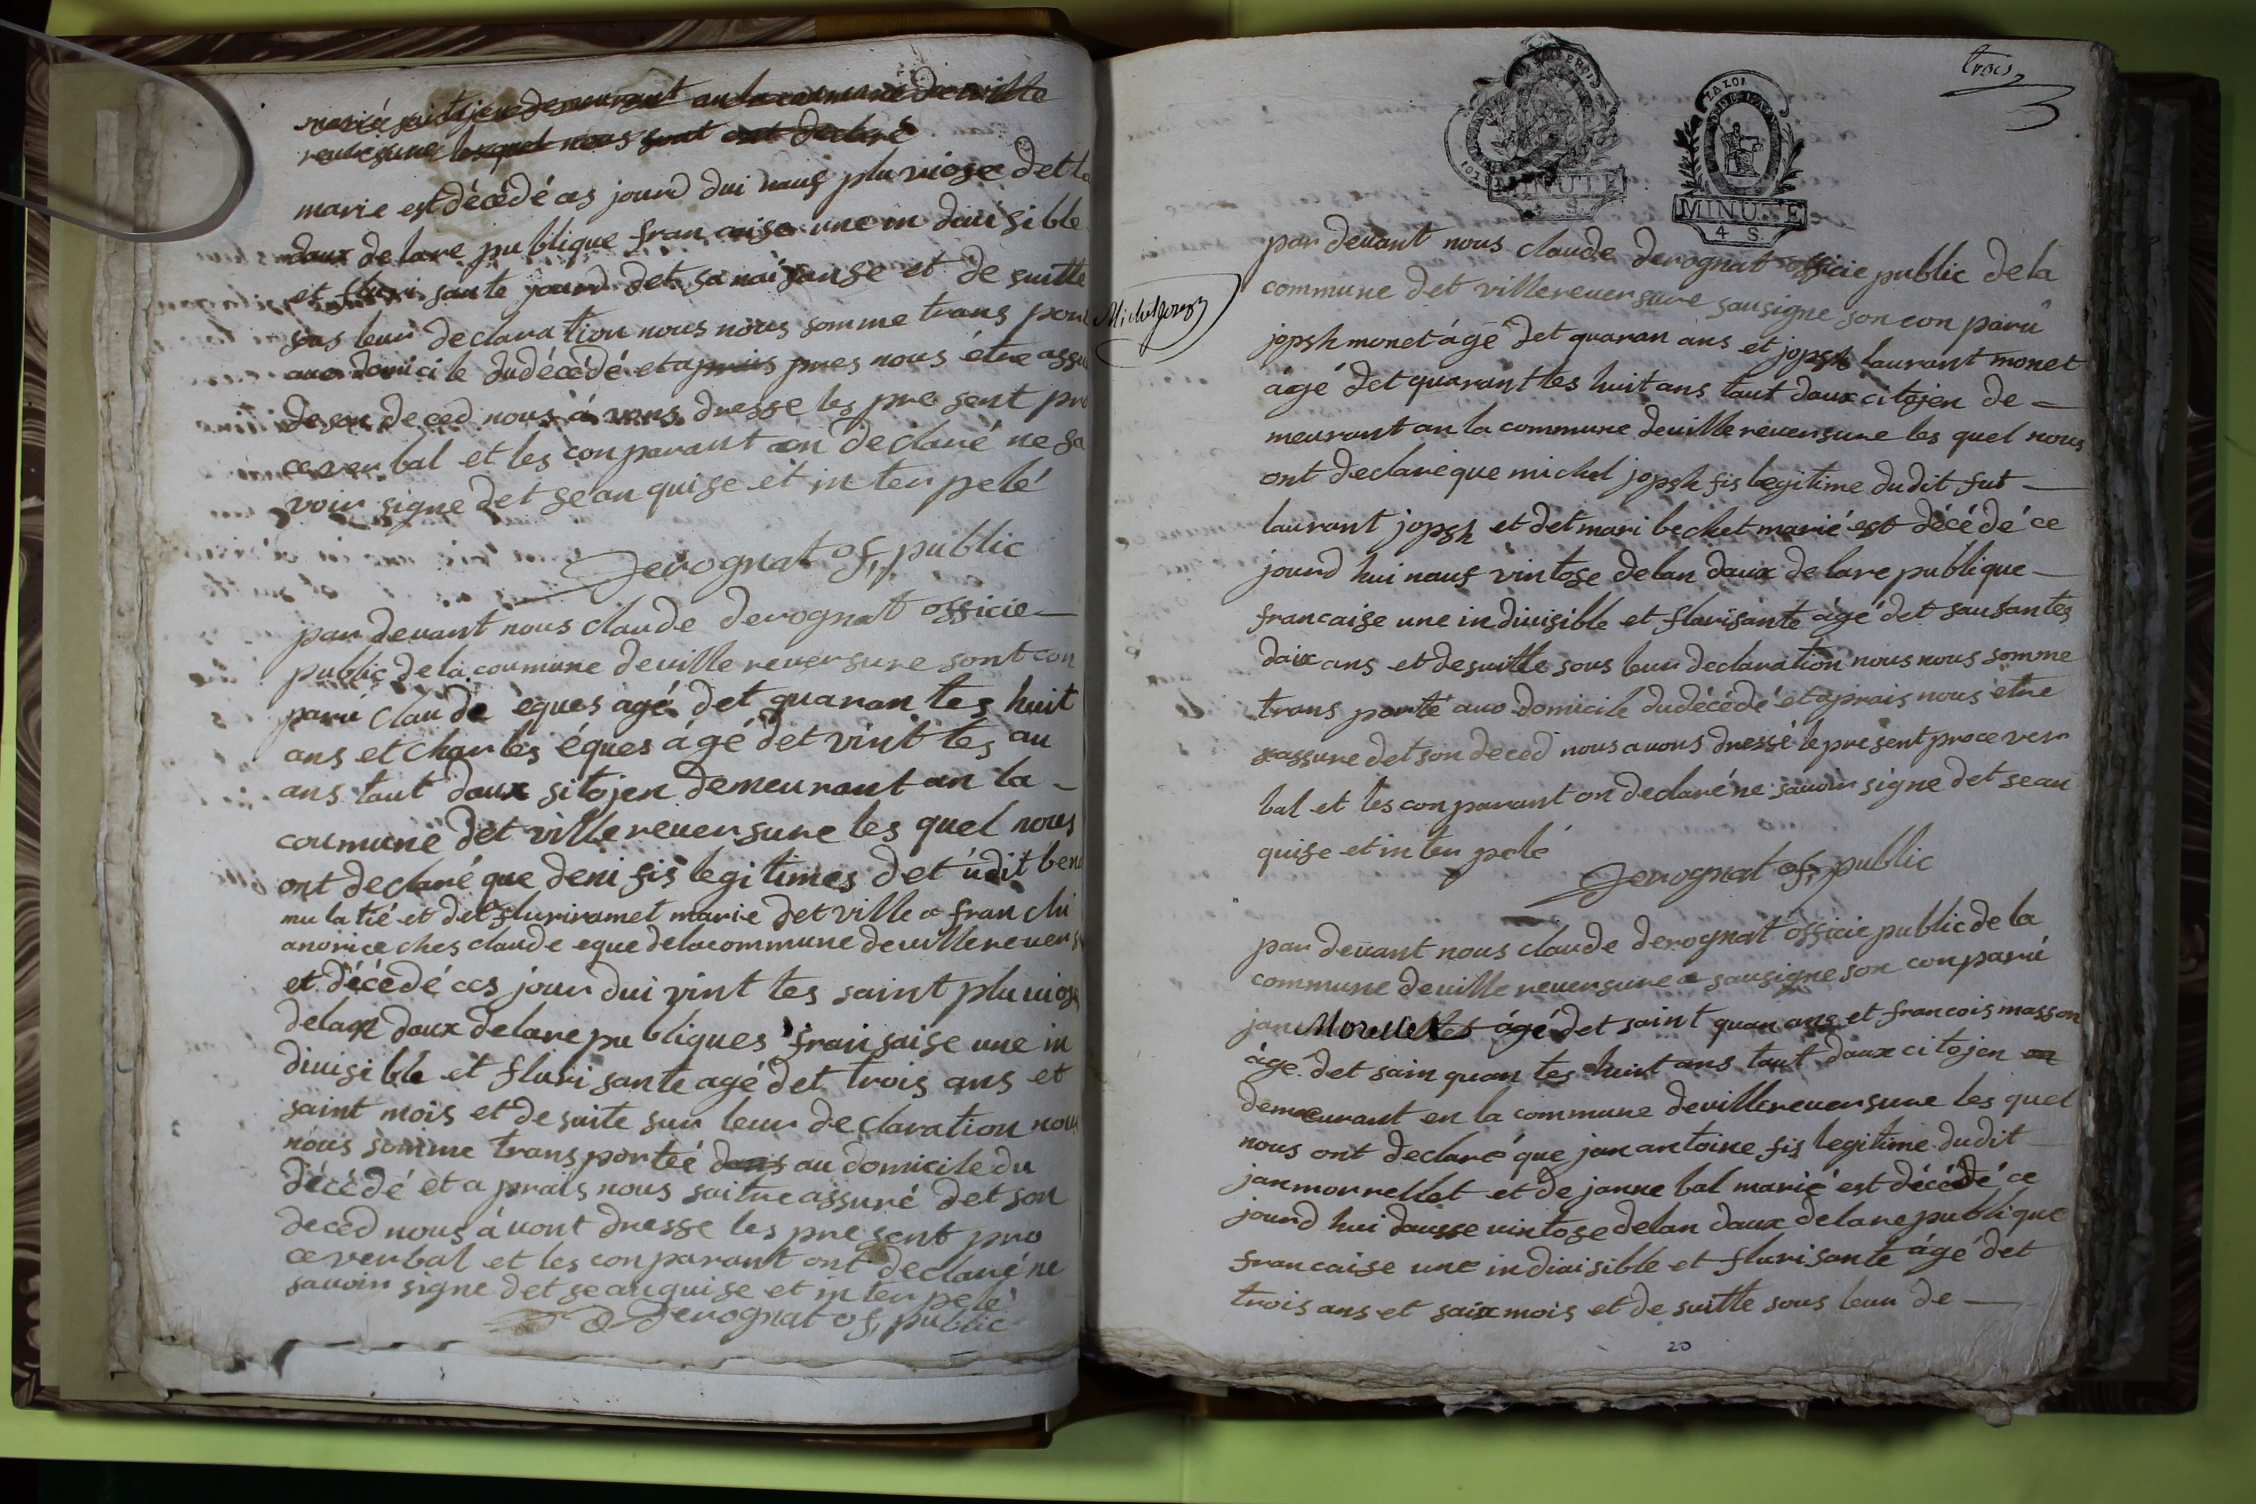 marié sitojen demeurant an la commune de ville
reuersure lesquel nous sont ont declaré
marie est décédé ces jourd dui nauf pluviose det la
daux de lare publique francaise une in diuisible
et fluri sante jourd det sa naisanse et de suitte
sus leur declaration nous nous somme trans port
auo domicile dudécédé et aprais pres nous étre assu
de son deced nous á vons dresse les pre sent pro
ce ver bal et les conparant on declaré ne sa
voir signe det se an quise et in ter pelé
Derognat of, public
par devant nous claude derognat officie
public de la coumune deuille reuersure sont con
paru claude éques agé det quaran tes huit
ans et charles éques ágé det vint tes au
ans taut daux sitojen demeurant an la
coumune det ville reuersure les quel nous
ont declaré que deni fis legitimes det udit ben
mu la tié et det fluriramet marie det ville a franchi
anorice ches claude eque delacommune deuillereuers
et décédé ces jour dui vint tes saint pluuiose
delan daux delare publiques fransaise une in
diuisible et flurisante agé det trois ans et
saint mois et de suite sur leur declaration nous
nous somme transportéé dans au domicile du
décédé et a prais nous saitre assuré det son
deced nous á uont dresse les present pro
ce verbal et les conparant ont declaré ne
sauoir signe det se anquise et in ter pelé
Derognat of, public
trois
LA LOI
MINUTE
4 S.
MINUTE
4 S.
par deuant nous claude derognat officie public de la
commune det villereuersure sausigne son con paru
jopsh monet ágé det quaran ans et jopsh laurant monet
ágé det quaranttes huit ans taut daux citojen de
meurant an la commune deuillereuersure les quel nous
ont declaré que michel jopsh fis legitime dudit fut
laurant jopsh et det mari bechet marié est décédé ce
jourd hui nauf vintose delan daux de lare publique
francaise une indiuisible et flurisante ágé det sausantes
daix ans et desuitte sous leur declaration nous nous somme
trans porté auo domicile dudécédé et aprais nous etre
assure det son deced nous auons dressé le present proce ver
bal et les conparant on declaré ne sauoir signe det sean
quise et in ter pelé
Derognat of, public
par deuant nous claude derognat officie public de la
commune deuille reuersure sausigne son conparú
jan Morellet ágé det saint quan ans et francois masson
ágé det sain quan tes huit ans taut daux citojen
demeurant en la commune devillereuersure les quel
nous ont declaré que jan antoine fis legitime dudit
jan morrellet et de janne bal marié est décédé ce
jourd hui dausse uintose delan daux delarepublique
francaise une indiuisible et flurisante ágé det
trois ans et saix mois et de suitte sous leur de
20